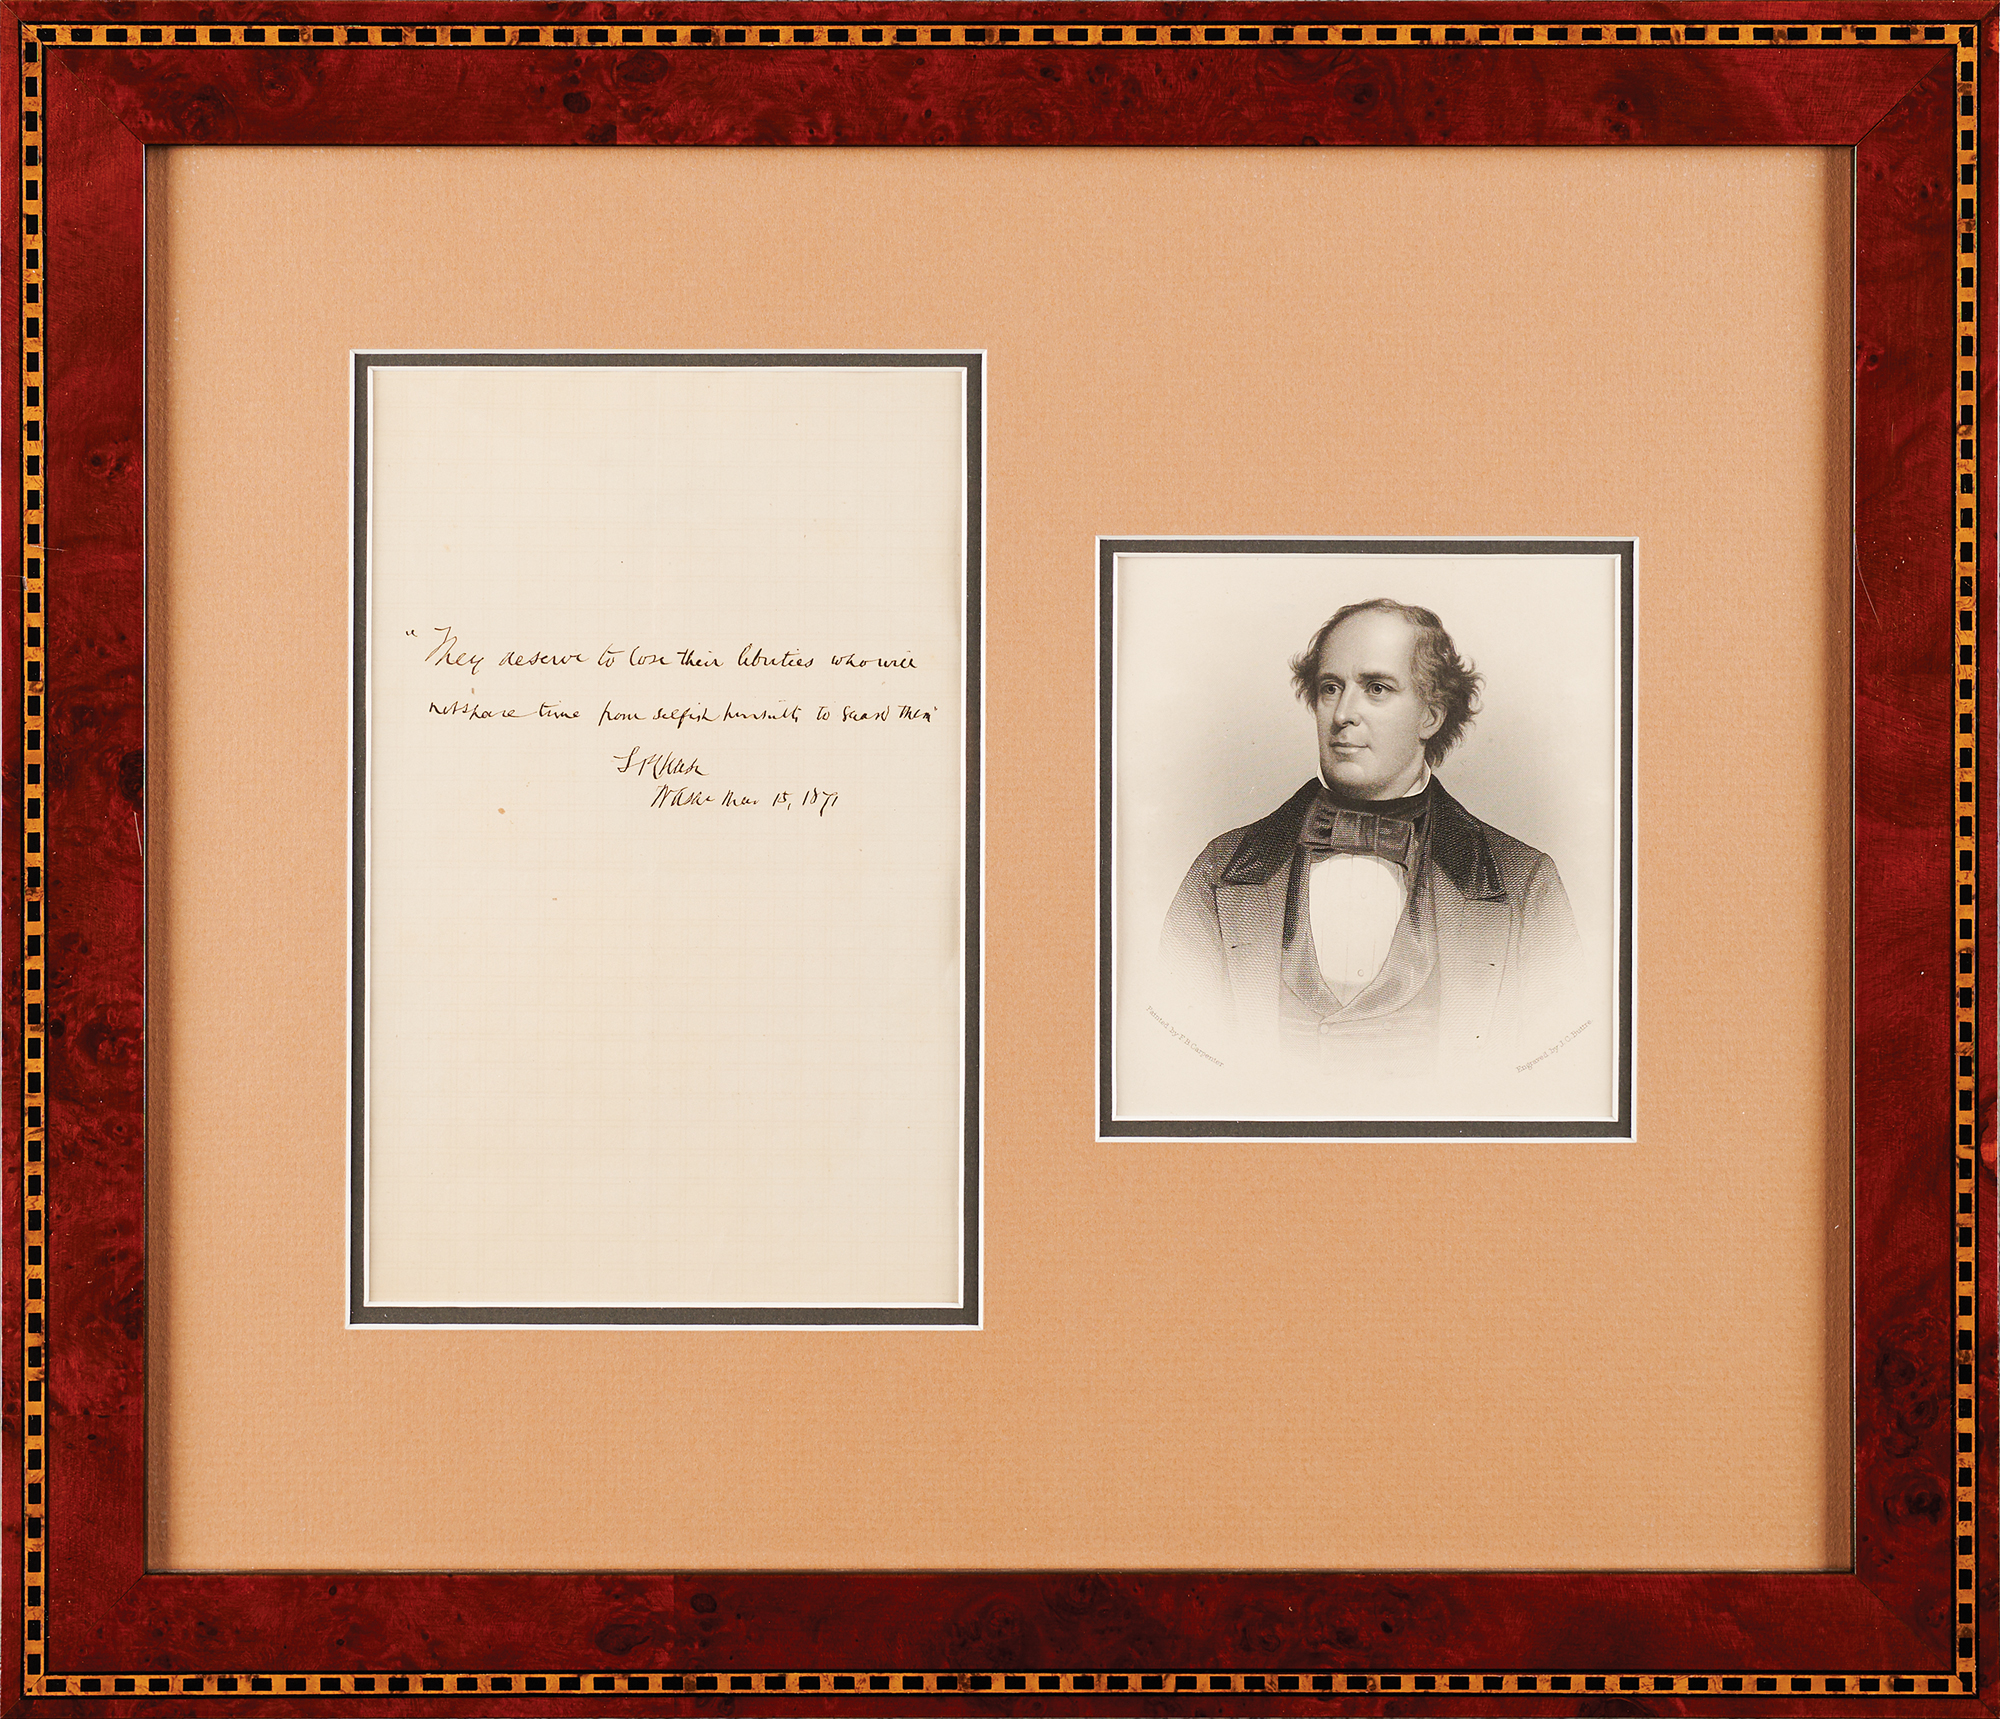 "They deserve to lose their liberties who will
not spare time from selfish pursuits to guard them"
S P Chase
Wash Mar 15, 1871
Painted by F. B. Carpenter
Engraved by J. C. Buttre